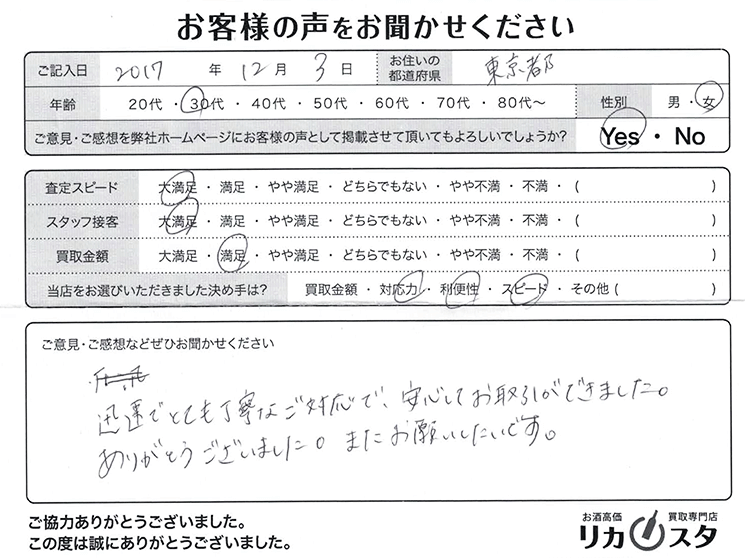 お客様の声をお聞かせください
ご記入日 2017 年 12 月 3 日 お住いの都道府県 東京都
年齢 20代・30代・40代・50代・60代・70代・80代〜 性別 男・女
ご意見・ご感想を弊社ホームページにお客様の声として掲載させて頂いてもよろしいでしょうか? Yes・No
査定スピード 大満足・満足・やや満足・どちらでもない・やや不満・不満・( )
スタッフ接客 大満足・満足・やや満足・どちらでもない・やや不満・不満・( )
買取金額 大満足・満足・やや満足・どちらでもない・やや不満・不満・( )
当店をお選びいただきました決め手は? 買取金額・対応力・利便性・スピード・その他 ( )
ご意見・ご感想などぜひお聞かせください
迅速でとても丁寧なご対応で、安心してお取引ができました。
ありがとうございました。またお願いしたいです。
ご協力ありがとうございました。
この度は誠にありがとうございました。
お酒高価 買取専門店
リカスタ